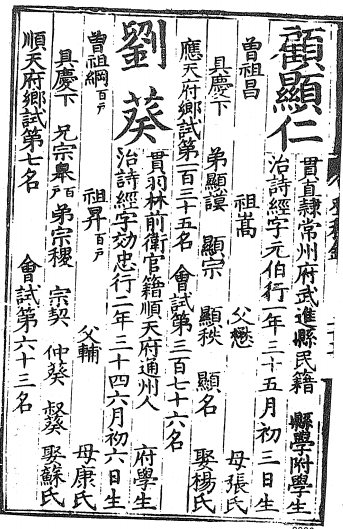 顧顯仁
貫直隷常州府武進縣民籍 縣學附學生
治詩經字元伯行一年三十五月初三日生
曾祖昌 祖嵩 父懋 母張氏
具慶下 弟顯謨 顯宗 顯秩 顯名 娶楊氏
應天府鄉試第一百三十五名 會試第三百七十六名
劉葵
貫羽林前衛官籍順天府通州人 府學生
治詩經字効忠行二年三十四六月初六日生
曾祖綱百戶 祖昇百戶 父輔 母康氏
具慶下 兄宗臯百戶 弟宗稷 宗契 仲葵 督葵 娶蘇氏
順天府鄉試第七名 會試第六十三名